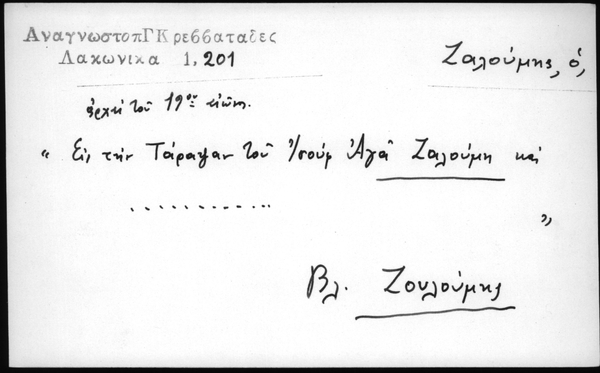 ΑναγνωστοπΓΚρεββαταδες
Λακωνικα 1, 201
Ζαλούμης, ὁ,
ἀρχαί τοῦ 19ου αἰῶνος.
" Εἰς τήν Τάραψαν τοῦ Ἀγᾶ Ζαλούμη καί
. . . . . . . . . . . . "
Βλ. Ζουλούμης